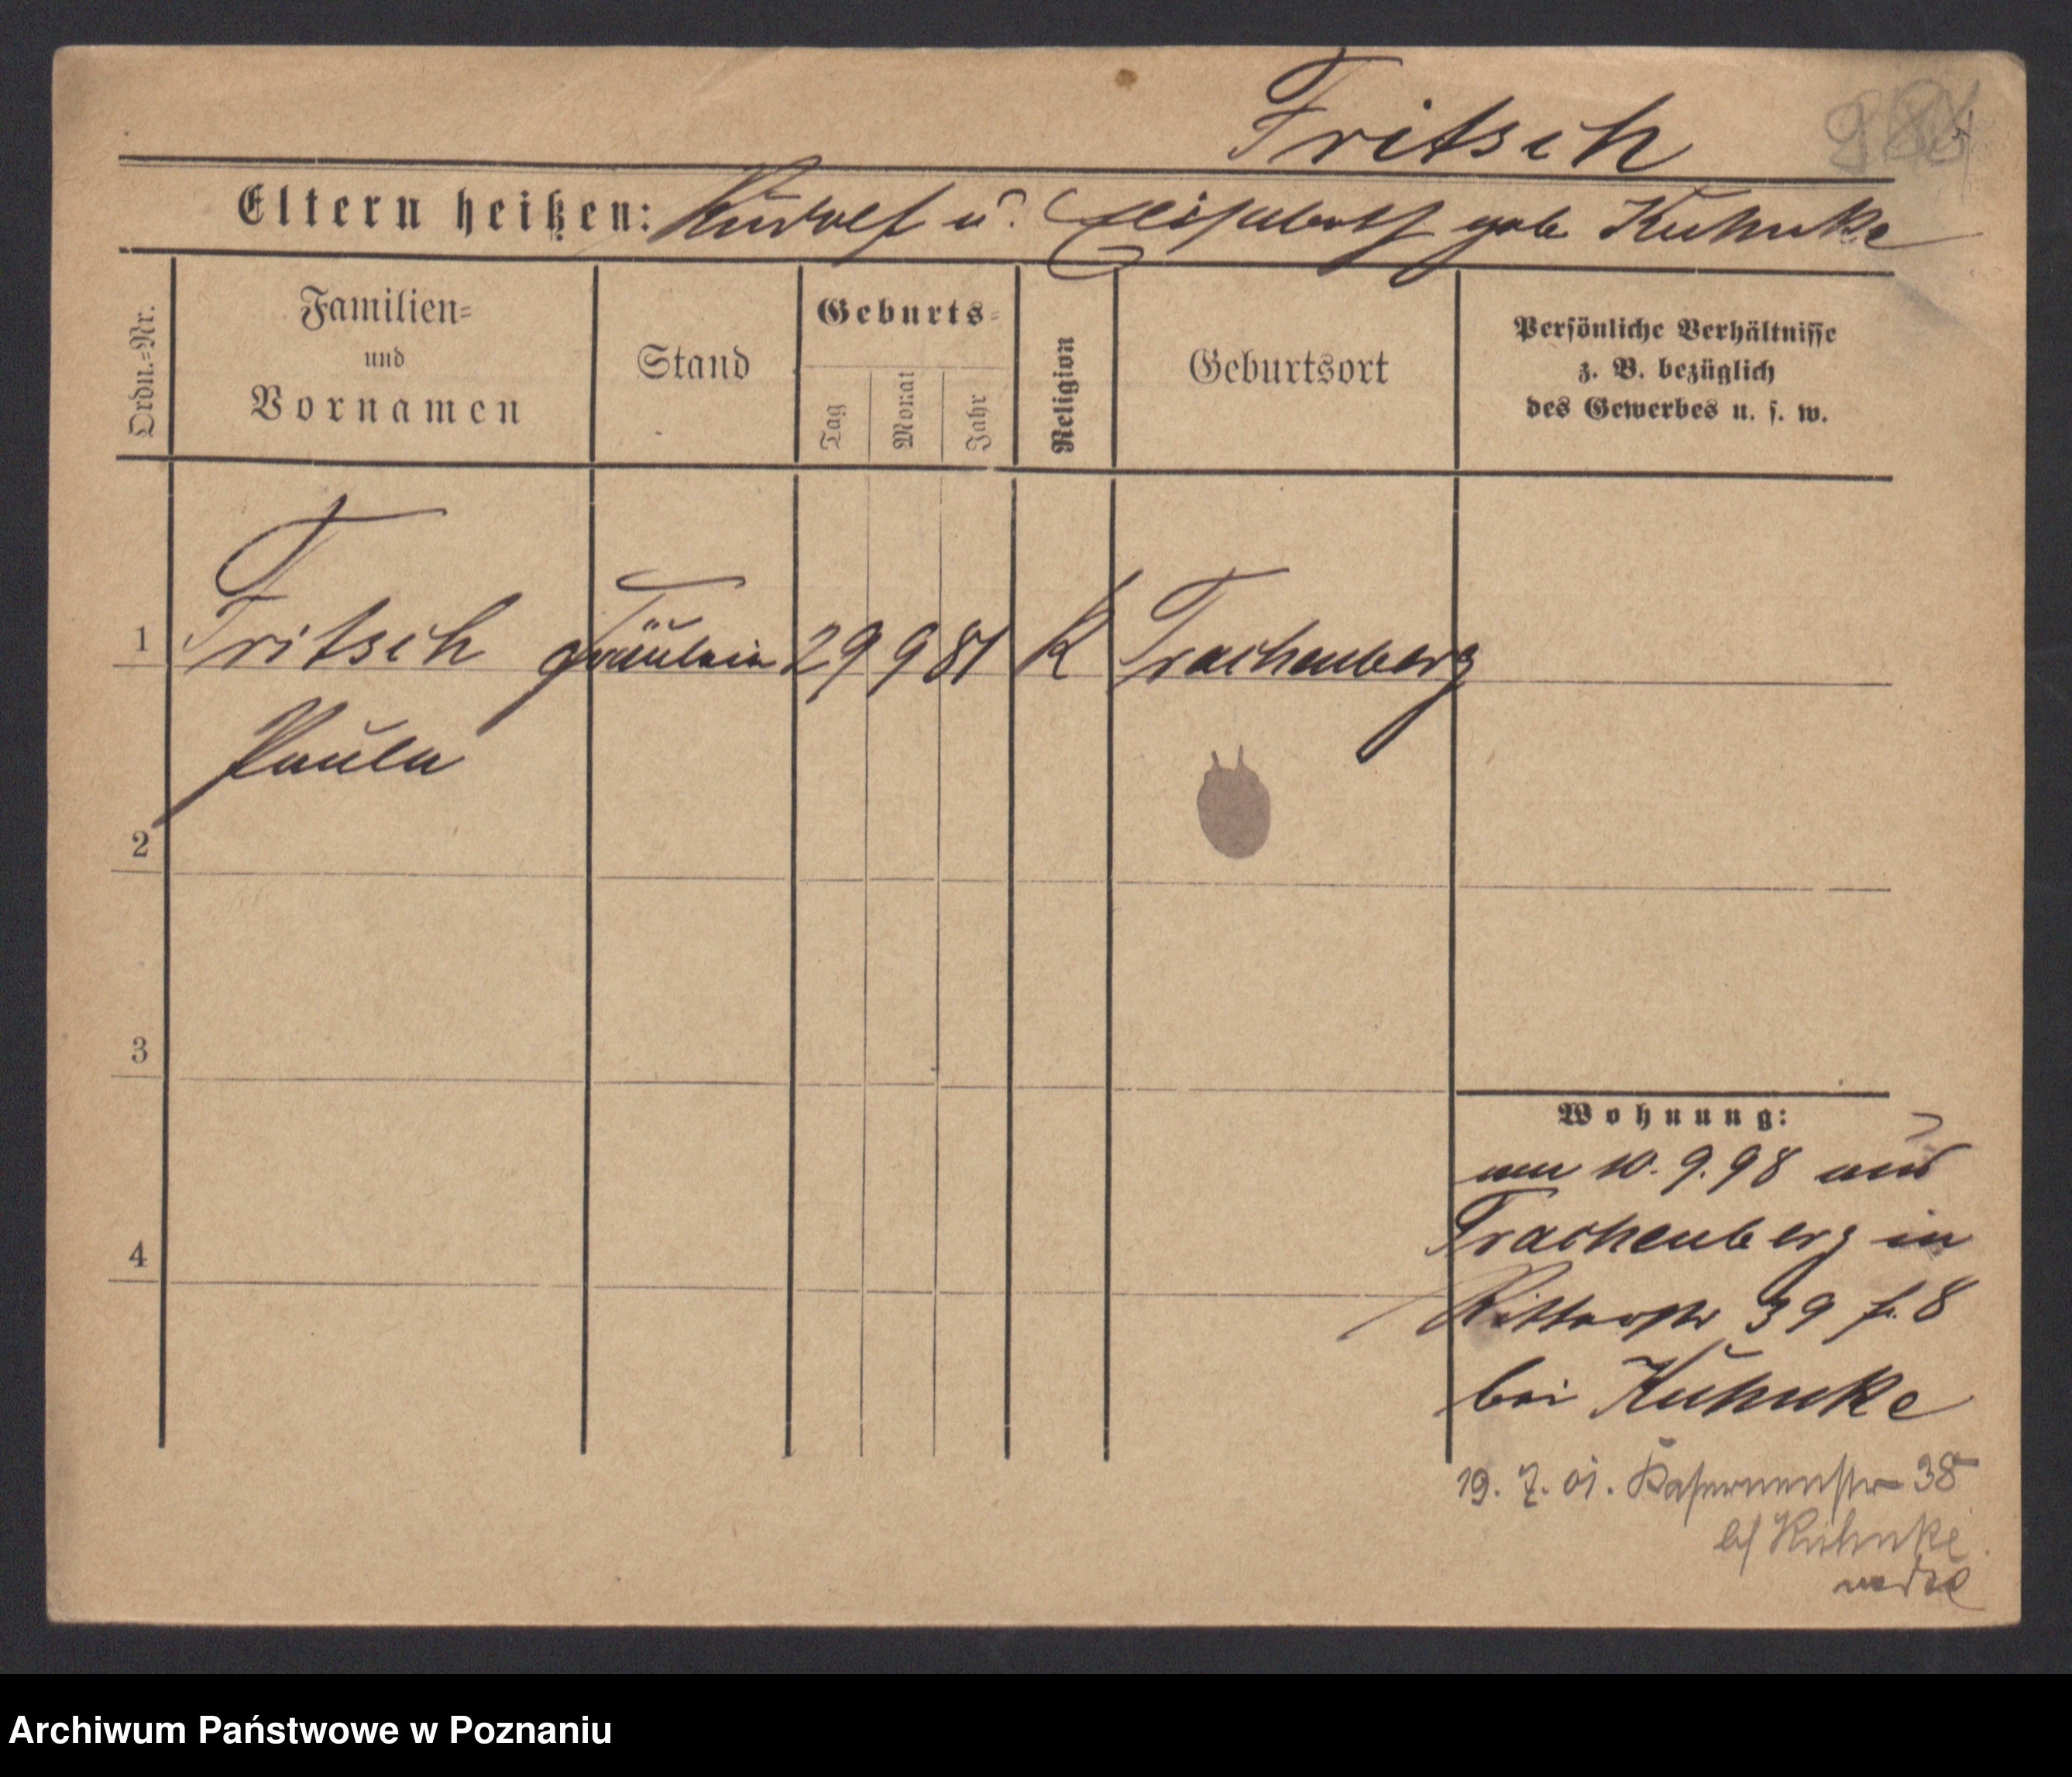 Fritsch
Eltern heißen: Rudolf u. Elisabeth geb Kuhnke
Ordn.-Nr.
Familien-
und
Vornamen
Stand
Geburts-
Tag
Monat
Jahr
Religion
Geburtsort
Persönliche Verhältnisse
z. B. bezüglich
des Gewerbes u. s. w.
1 Fritsch Fräulein 29 9 81 K Trachenberg
Paula
2
3
Wohnung:
am 10. 9. 98 aus
Trachenberg in
4
Ritterstr 39
bei Kuhnke
19. 7. 01. Kasernenstr 38
b/ Kuhnke
Archiwum Państwowe w Poznaniu